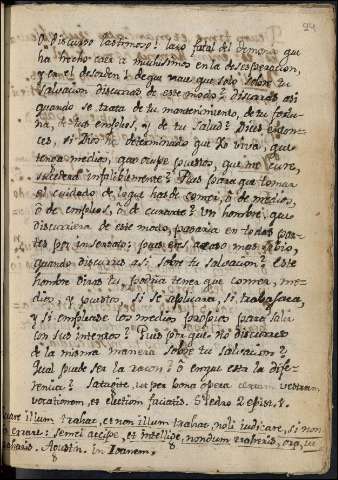 94
O Discurso lastimoso! lazo fatal del demonio que
ha hecho caer a muchisimos en la desesperacion,
y en el desorden! de que nace que solo sobre tu
salvacion discurras de este modo? discurres asi
quando se trata de tu mantenimiento, de tu fortu-
na, de tus empleos, y de tu salud? Dices enton-
ces, si Dios ha determinado que Yo viva, que
tenga medios, que ocupe puestos, que me cure,
sucederá infaliblemente? Pues para que tomar
el cuidado de lo que has de comer, ò de medios,
ò de empleos, ò de curarte? Un hombre, que
discurriera de este modo, pasaria en todas par-
tes por insensato; pues eres acaso mas sabio,
quando discurres asi sobre tu salvacion? Este
hombre diras tu, podria tener que comer, me-
dios, y puestos, si se aplicara, si trabajara,
y si emplease los medios propios para salir
con sus intentos? Pues por que no discurres
de la misma manera sobre tu salvacion?
Qual puede ser la razon? ò en que esta la dife-
rencia? Satagite, ut per bona opera certam vestram
vocationem, et election faciatis. S. Pedro 2 epist. 1.
quare illum trahat, et non illum trahat noli judicare, si non
vis errare: semel accipe, et intellige, nondum traheris, ora, ut
traharis. Agustin. in Ioanem.